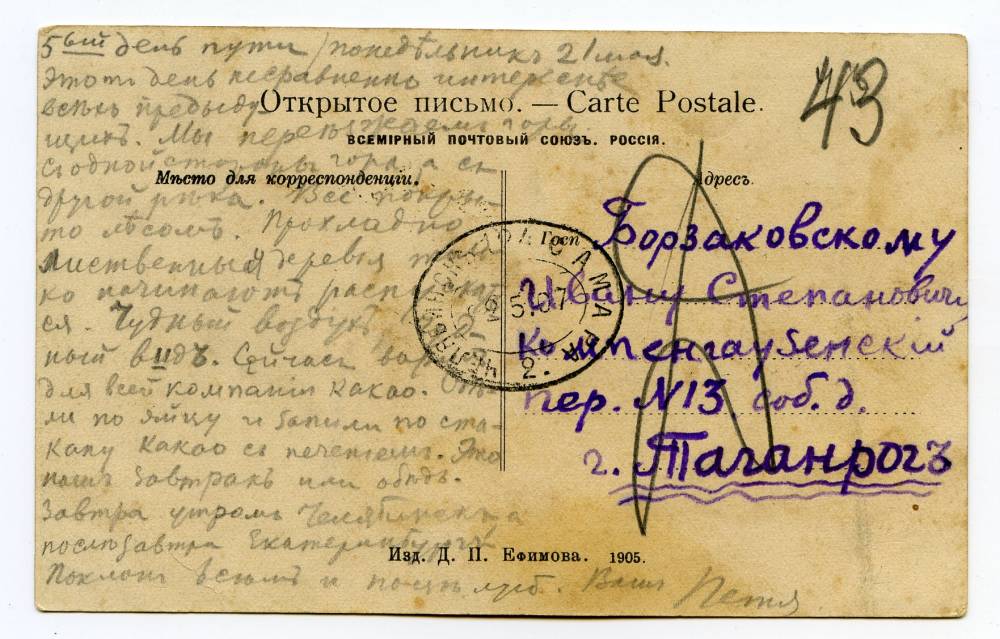 5ый день пути / понедѣльникъ 21 мая.
Этотъ день несравненно интереснѣе
всѣхъ предыду
щихъ. Мы переѣзжаемъ горы
Съ одной стороны гора, а съ
другой рѣка. Все покры-
то лѣсомъ. Прохладно
Лиственныя деревья толь
ко начинаютъ распускат
ся. Чудный воздухъ,
ный видъ. Сейчасъ
для всей компаніи какао. Съѣ-
ли по яйцу и запили по ста-
кану какао съ печеніемъ. Это
нашъ завтракъ или обѣдъ.
Завтра утромъ Челябинскъ а
послѣзавтра Екатеринбургъ
Поклонъ всѣмъ и Вашъ Петя
Открытое письмо. — Carte Postale.
ВСЕМІРНЫЙ ПОЧТОВЫЙ СОЮЗЪ. РОССІЯ.
Мѣсто для корреспонденціи.
Адресъ.
43
Госп
Борзаковскому
Ивану Степановичу
Кампенгаузенскій
пер. N13. соб. д.
г. Таганрогъ
ЧЕЛЯБИНСКЪ САМАРА
5.07
2.
Изд. Д. П. Ефимова. 1905.